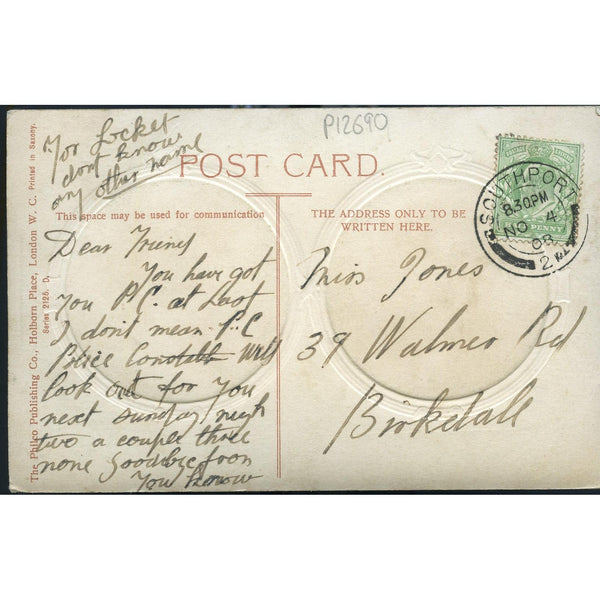 P12690
For Locket
dont know
any other name
POST CARD.
This space may be used for communication
THE ADDRESS ONLY TO BE
WRITTEN HERE.
Dear Friend
You have got
You P.C. at Last
I don't mean P.C
Police Constable Will
look out for You
next sunday nigh
two a couple three
none Goodbye from
You know
Miss Jones
39 Walmer Rd
Birkdale
SOUTHPORT
8.30PM
NO 4
08
2
PENNY
The Philco Publishing Co., Holborn Place, London W. C. Printed in Saxony.
Series 2126. D.